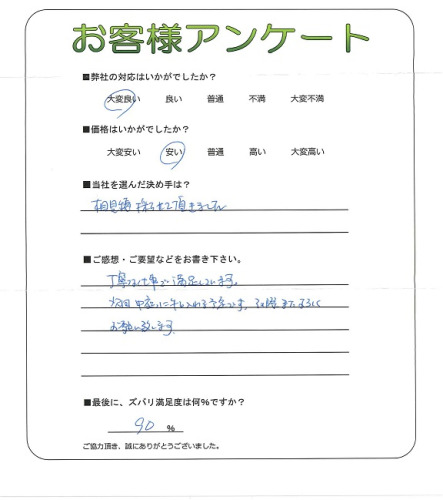 お客様アンケート
■弊社の対応はいかがでしたか？
大変良い 良い 普通 不満 大変不満
■価格はいかがでしたか？
大変安い 安い 普通 高い 大変高い
■当社を選んだ決め手は？
相見積 させて頂きました
■ご感想・ご要望などをお書き下さい。
丁寧な仕事で満足しています。
次回 中庭に手し入れる予定です。その際 またよろしく
お願い致します
■最後に、ズバリ満足度は何%ですか？
90 %
ご協力頂き、誠にありがとうございました。